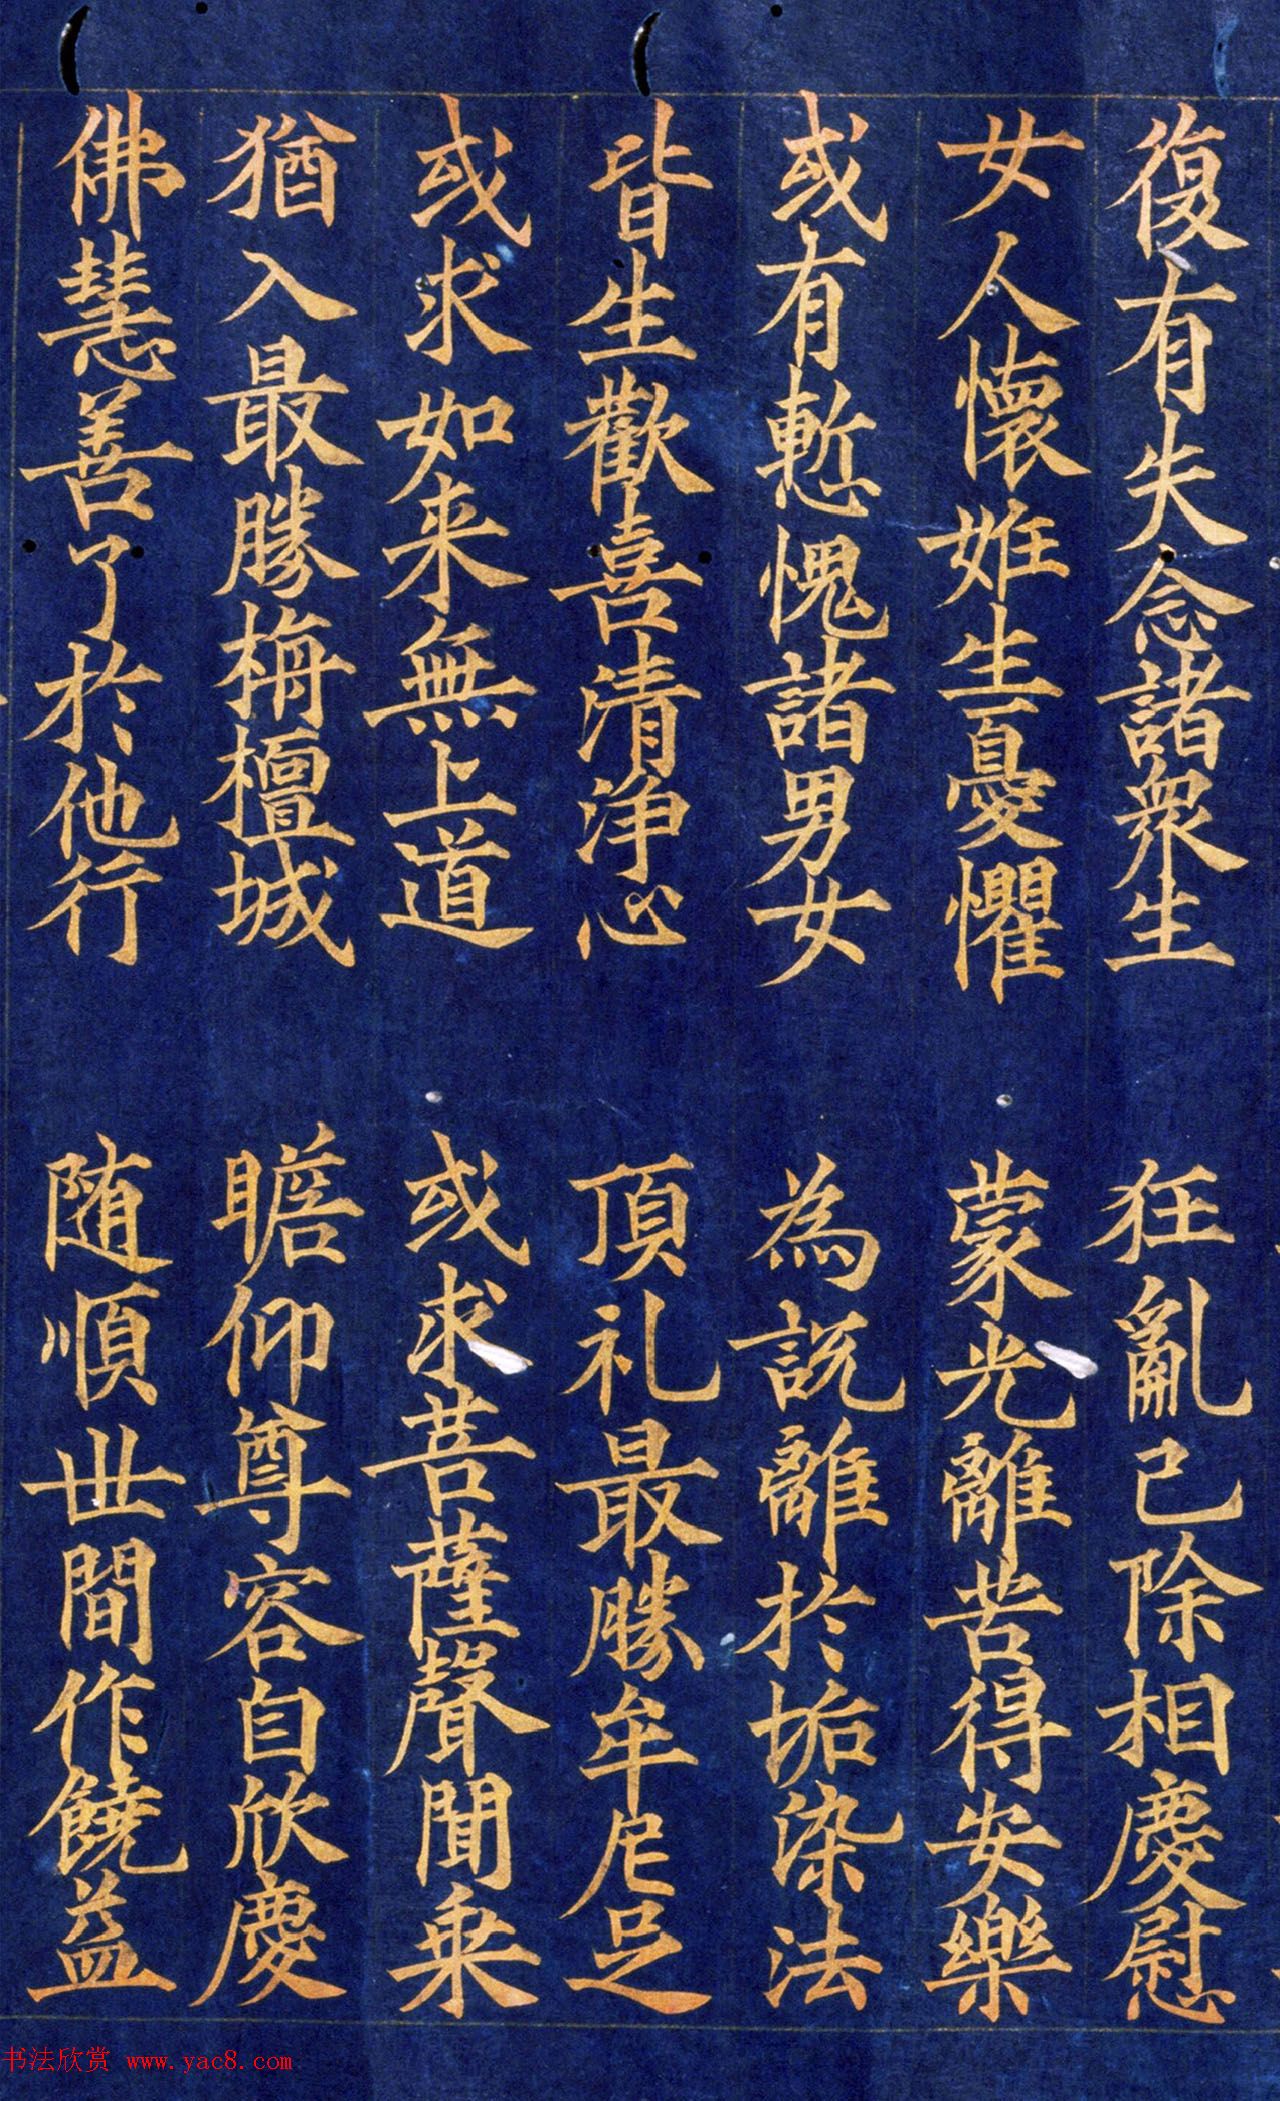 復有失念諸衆生　狂亂已除相慶慰
女人懐姙生憂懼　蒙光離苦得安樂
或有慙愧諸男女　為説離於垢染法
皆生歡喜清浄心　頂礼最勝牟尼足
或求如来無上道　或求菩薩聲聞乗
猶入最勝栴檀城　瞻仰尊容自欣慶
佛慧善了於他行　随順世間作饒益
书法欣赏 www.yac8.com